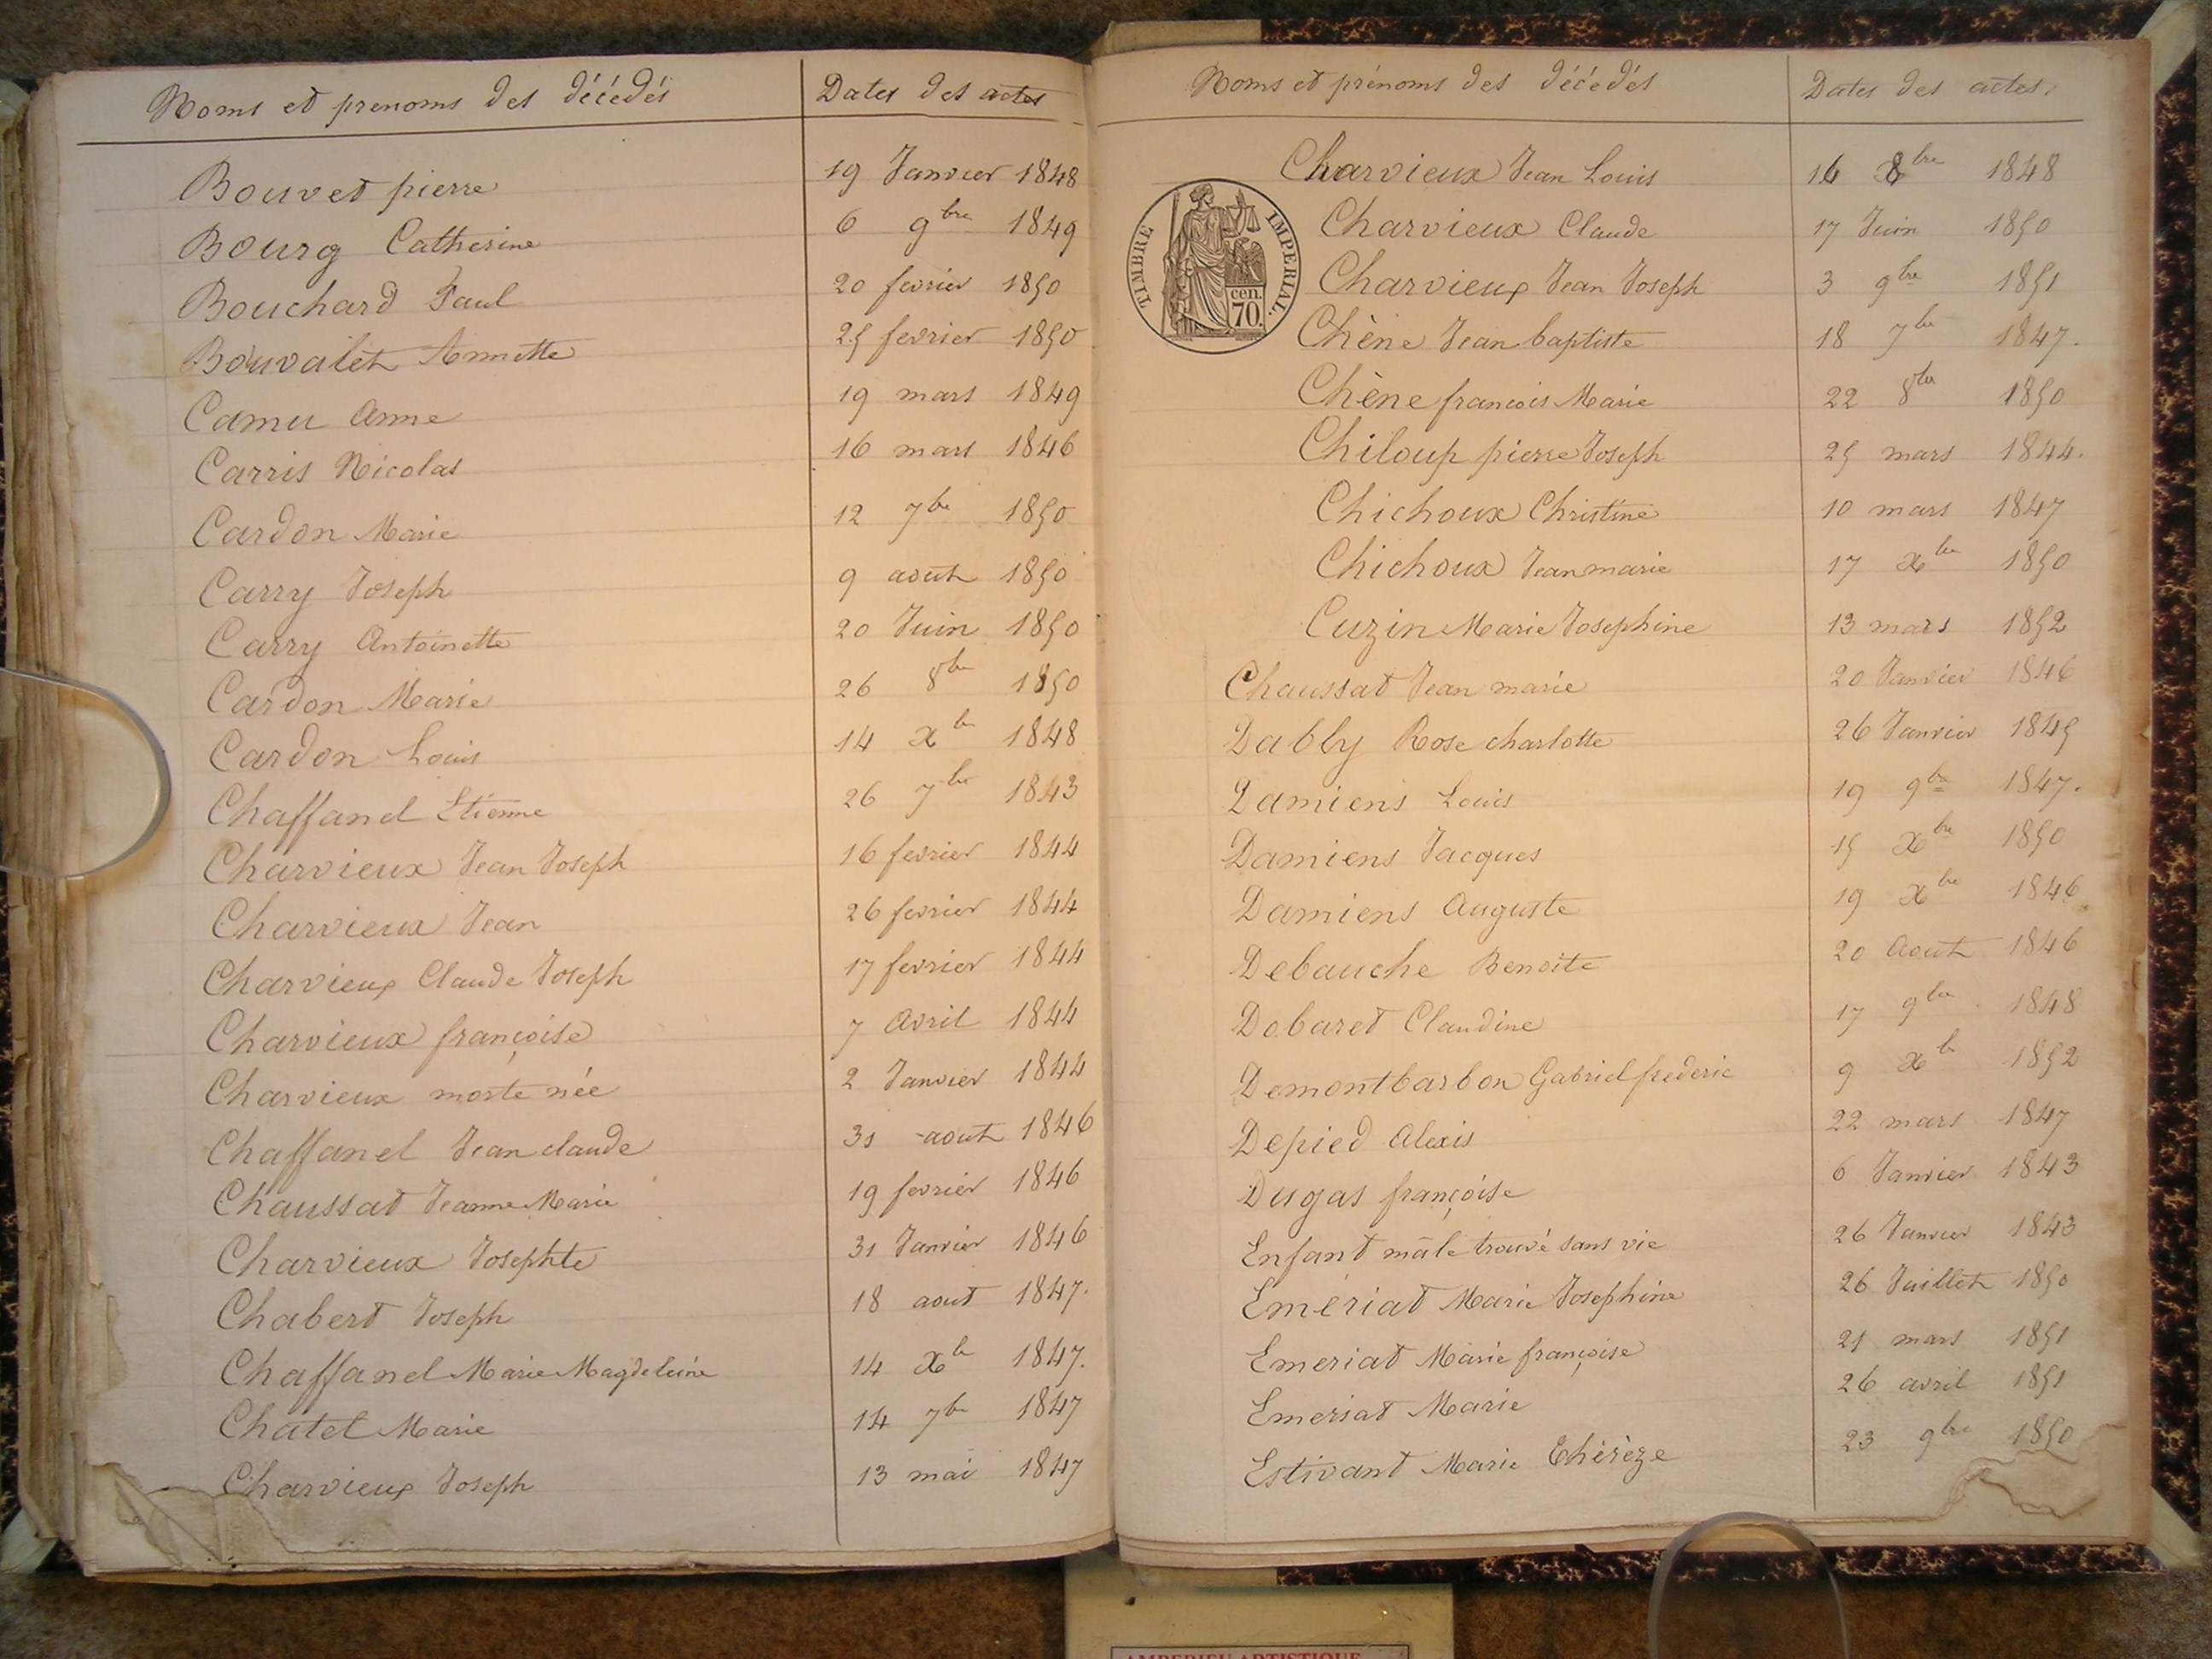 Noms et prenoms des décédés Dates des actes
Bouvet pierre 19 Janvier 1848
Bourg Catherine 6 9bre 1849
Bouchard Paul 20 fevrier 1850
Bouvalet Annette 25 fevrier 1850
Camu Anne 19 mars 1849
Carris Nicolas 16 mars 1846
Cardon Marie 12 7bre 1850
Carry Joseph 9 aout 1850
Carry Antoinette 20 Juin 1850
Cardon Marie 26 8bre 1850
Cardon Louis 14 Xbre 1848
Chaffanel Etienne 26 7bre 1843
Charvieux Jean Joseph 16 fevrier 1844
Charvieux Jean 26 fevrier 1844
Charvieux Claude Joseph 17 fevrier 1844
Charvieux françoise 7 Avril 1844
Charvieux morte née 2 Janvier 1844
Chaffanel Jean claude 31 aout 1846
Chaussat Jeanne Marie 19 fevrier 1846
Charvieux Josephte 31 Janvier 1846
Chabert Joseph 18 aout 1847.
Chaffanel Marie Magdeleine 14 Xbre 1847.
Chatel Marie 14 7bre 1847
Charvieux Joseph 13 mai 1847
Noms et prénoms des décédés Dates des actes.
Charvieux Jean Louis 16 1848
Charvieux Claude 17 Juin 1850
Charvieux Jean Joseph 3 9bre 1851
Chène Jean baptiste 18 7bre 1847.
Chène francois Marie 22 8bre 1850
Chiloup pierre Joseph 25 mars 1844.
Chichoux Christine 10 mars 1847
Chichoux Jean marie 17 Xbre 1850
Cuzin Marie Josephine 13 mars 1852
Chaussat Jean marie 20 Janvier 1846
Dably Rose charlotte 26 Janvier 1845
Damiens Louis 19 9bre 1847.
Damiens Jacques 15 Xbre 1850
Damiens Auguste 19 Xbre 1846
Debauche Benoite 20 Aout 1846
Dobaret Claudine 17 9bre 1848
Demontbarbon Gabriel frederic 9 Xbre 1852
Depied Alexis 22 mars 1847
Dugas françoise 6 Janvier 1843
Enfant mâle trouvé sans vie 26 Janvier 1843
Emeriat Marie Josephine 26 Juillet 1850
Emeriat Marie françoise 21 mars 1851
Emeriat Marie 26 avril 1851
Estivant Marie Thérèze 23 9bre 1850
TIMBRE IMPERIAL.
cen.
70.
AMBERIEU ARTISTIQUE